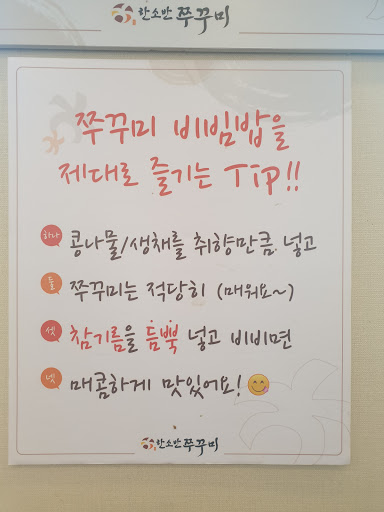 한소반쭈꾸미
쭈꾸미 비빔밥을
제대로 즐기는 Tip!!
하나 콩나물/생채를 취향만큼 넣고
둘 쭈꾸미는 적당히 (매워요~)
셋 참기름을 듬뿍 넣고 비비면
넷 매콤하게 맛있어요!
한소반쭈꾸미